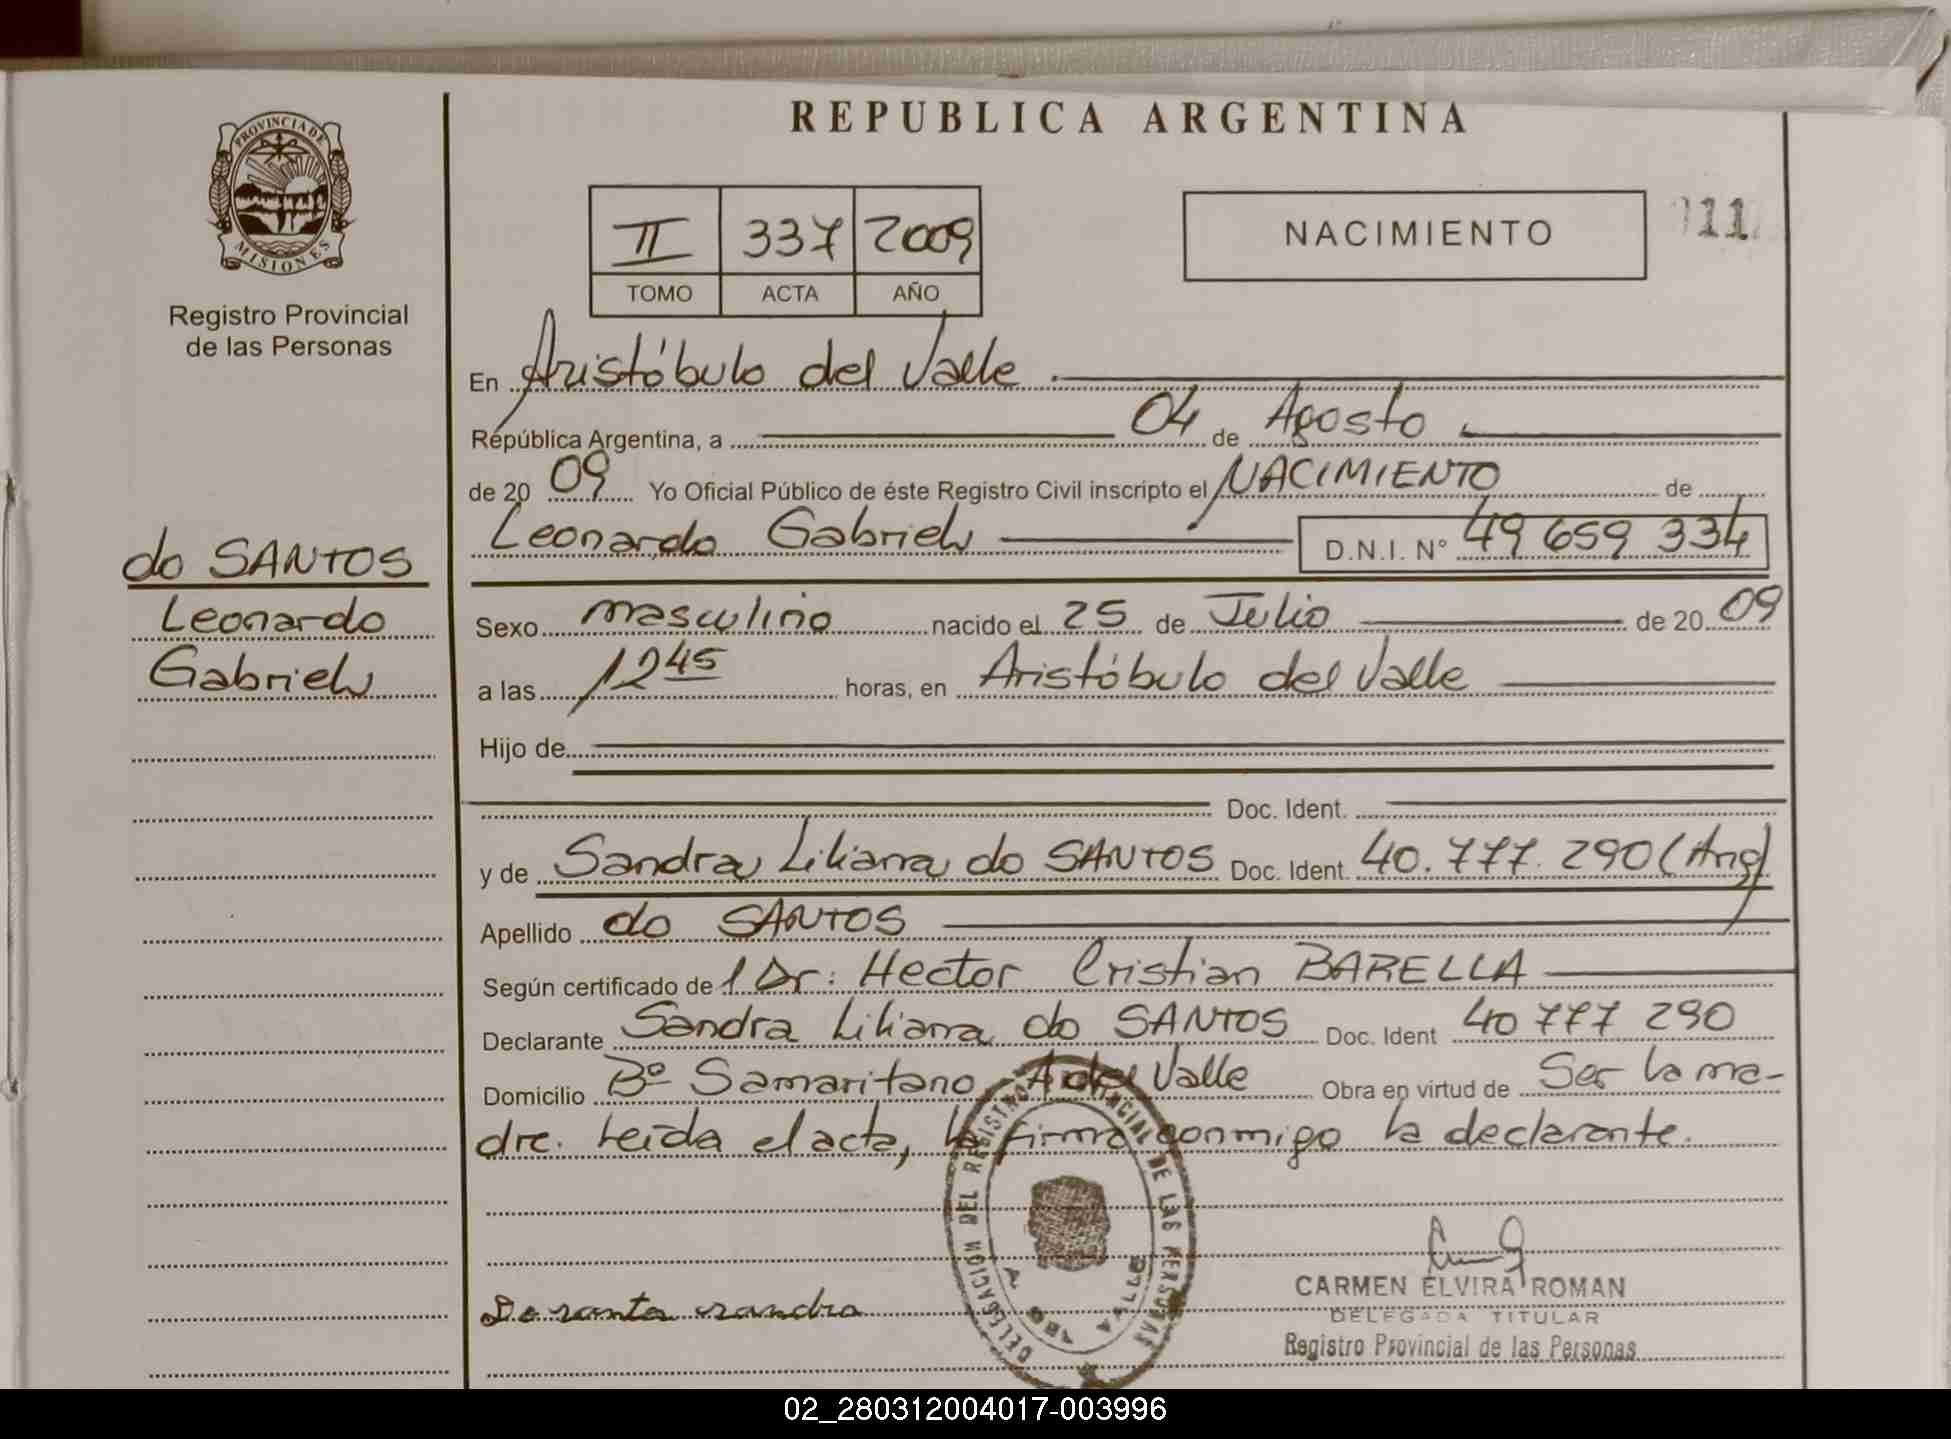 REPUBLICA ARGENTINA
PROVINCIA DE
MISIONES
Registro Provincial
de las Personas
II 337 2009
TOMO ACTA AÑO
NACIMIENTO
11
En Aristóbulo del Valle
República Argentina, a 04 de Agosto
de 20 09 Yo Oficial Público de éste Registro Civil inscripto el NACIMIENTO de
Leonardo Gabriel D.N.I. N° 49 659 334
do SANTOS
Leonardo
Gabriel
Sexo masculino nacido el 25 de Julio de 20 09
a las 12 45 horas, en Aristóbulo del Valle
Hijo de
Doc. Ident.
y de Sandra Liliana do SANTOS Doc. Ident. 40.777.290 (Arg)
Apellido do SANTOS
Según certificado de l Dr: Hector Cristian BARELLA
Declarante Sandra Liliana do SANTOS Doc. Ident 40 777 290
Domicilio Bº Samaritano A del Valle Obra en virtud de Ser la ma-
dre. Leída el acta, la firma conmigo la declarante.
DELEGACION DEL REGISTRO PROVINCIAL DE LAS PERSONAS
A DEL VALLE
Do santa sandra
CARMEN ELVIRA ROMAN
DELEGADA TITULAR
Registro Provincial de las Personas
02_280312004017-003996